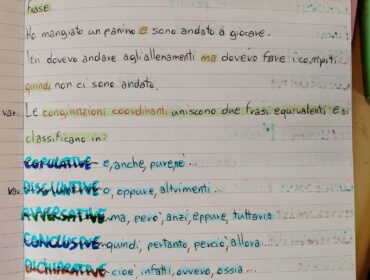 frase
Ho mangiato un panino e sono andato a giocare.
Ieri dovevo andare agli allenamenti ma dovevo fare i compiti
quindi non ci sono andato.
var. Le congiunzioni coordinanti uniscono due frasi equivalenti e si
classificano in:
COPULATIVE- e, anche, pure, nè ...
var. DISGIUNTIVE- o, oppure, altrimenti ...
AVVERSATIVE- ma, però, anzi, eppure, tuttavia
CONCLUSIVE- quindi, pertanto, perciò, allora...
DICHIARATIVE- cioè, infatti, ovvero, ossia ...